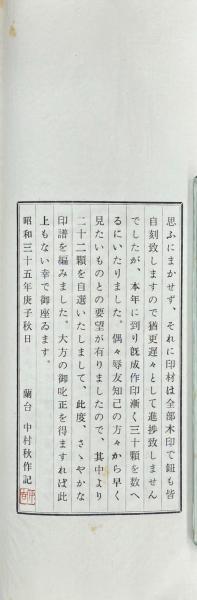 思ふにまかせず、それに印材は全部木印で鈕も皆
自刻致しますので猶更遅々として進捗致しません
でしたが、本年に到り既成作印漸く三十顆を数へ
るにいたりました。偶々辱友知己の方々から早く
見たいものとの要望が有りましたので、其中より
二十二顆を自選いたしまして、此度、さゝやかな
印譜を編みました。大方の御叱正を得ますれば此
上もない幸で御座ゐます。
昭和三十五年庚子秋日
蘭台　中村秋作記